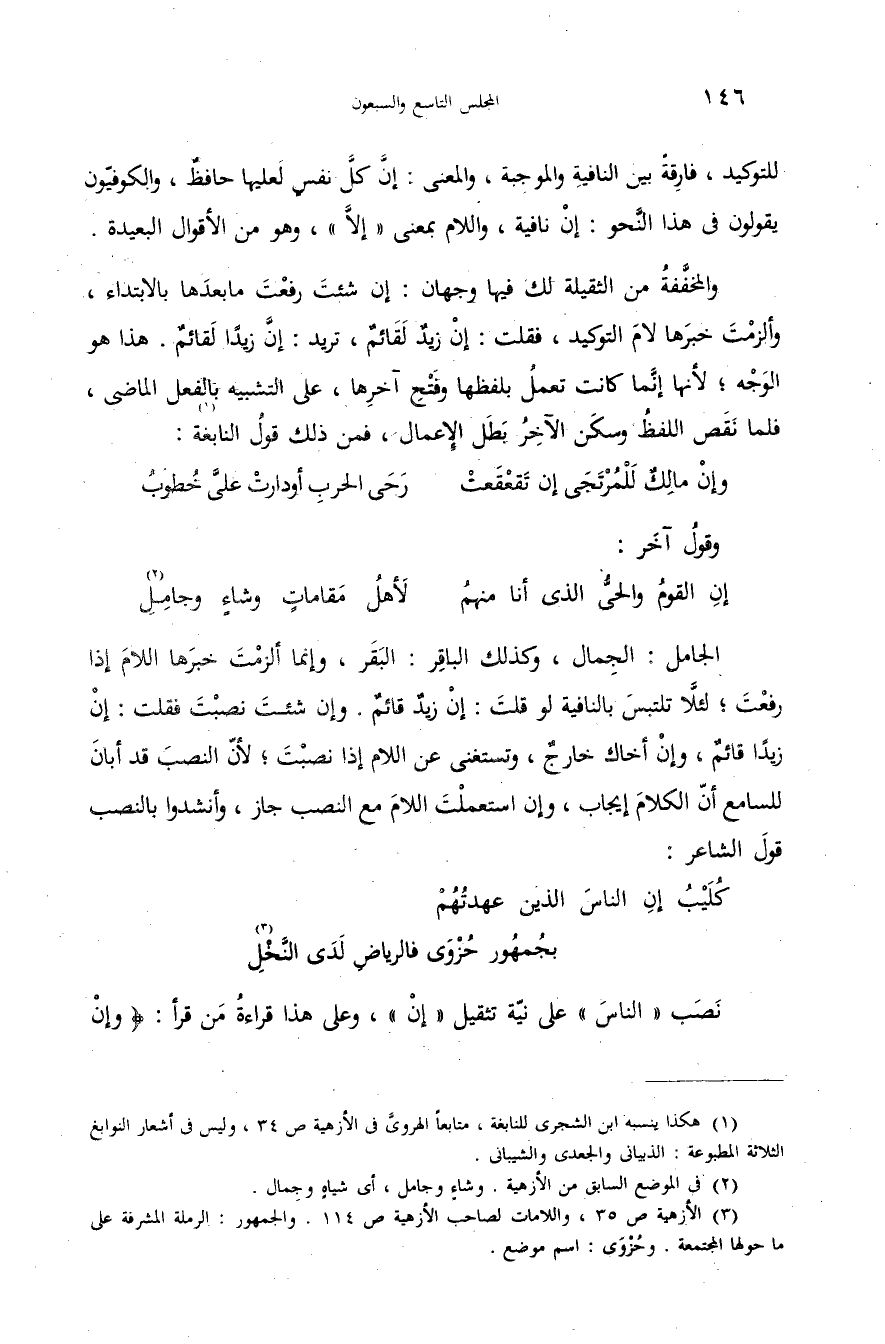 ١٤٦
المجلس التاسع والسبعون
للتوكيد ، فارِقةٌ بين النافيةِ والموجبة ، والمعنى : إنَّ كلَّ نفسٍ لَعليها حافظٌ ، والكوفيّون
يقولون فى هذا النَّحو : إنْ نافية ، واللام بمعنى « إلاَّ » ، وهو من الأقوال البعيدة .
والمخفَّفةُ من الثقيلة لك فيها وجهان : إن شئتَ رفعْتَ مابعدَها بالابتداء ،
وألزمْتَ خبرَها لامَ التوكيد ، فقلت : إنْ زيدٌ لَقَائمٌ ، تريد : إنَّ زيدًا لَقائمٌ . هذا هو
الوَجْه ؛ لأنها إنَّما كانت تعملُ بلفظها وفَتْحِ آخرِها ، على التشبيه بالفعل الماضى ،
فلما نَقَص اللفظُ وسكَن الآخِرُ بَطَل الإعمال ، فمن ذلك قولُ النابغة (١) :
وإنْ مالِكٌ لَلْمُرْتَجَى إن تَقعْقَعتْ رَحَى الحربِ أودارتْ علىَّ خُطوبُ
وقولُ آخَر :
إنِ القومُ والحىُّ الذى أنا منهمُ لَأهلُ مَقاماتٍ وشاءٍ وجامِلِ (٢)
الجامل : الجِمال ، وكذلك الباقِر : البَقَر ، وإنما ألزمْتَ خبرَها اللامَ إذا
رفعْتَ ؛ لئلَّا تلتبسَ بالنافية لو قلتَ : إنْ زيدٌ قائمٌ . وإن شئتَ نصبْتَ فقلت : إنْ
زيدًا قائمٌ ، وإنْ أخاك خارجٌ ، وتستغنى عن اللام إذا نصبْتَ ؛ لأنّ النصبَ قد أبانَ
للسامع أنّ الكلامَ إيجاب ، وإن استعملْتَ اللامَ مع النصب جاز ، وأنشدوا بالنصب
قولَ الشاعر :
كُلَيْبُ إنِ الناسَ الذين عهدتُهُمْ
بجُمهور حُزْوَى فالرياضِ لَدَى النَّخْلِ (٣)
نَصَب « الناسَ » على نيّة تثقيل « إنْ » ، وعلى هذا قراءةُ مَن قرأ : ﴿ وإنْ
(١) هكذا ينسبه ابن الشجرى للنابغة ، متابعاً الهروىَّ فى الأزهية ص ٣٤ ، وليس فى أشعار النوابغ
الثلاثة المطبوعة : الذبيانى والجعدى والشيبانى .
(٢) فى الموضع السابق من الأزهية . وشاءٍ وجامل ، أى شياهٍ وجمال .
(٣) الأزهية ص ٣٥ ، واللامات لصاحب الأزهية ص ١١٤ . والجمهور : الرملة المشرفة على
ما حولها المجتمعة . وحُزْوَى : اسم موضع .